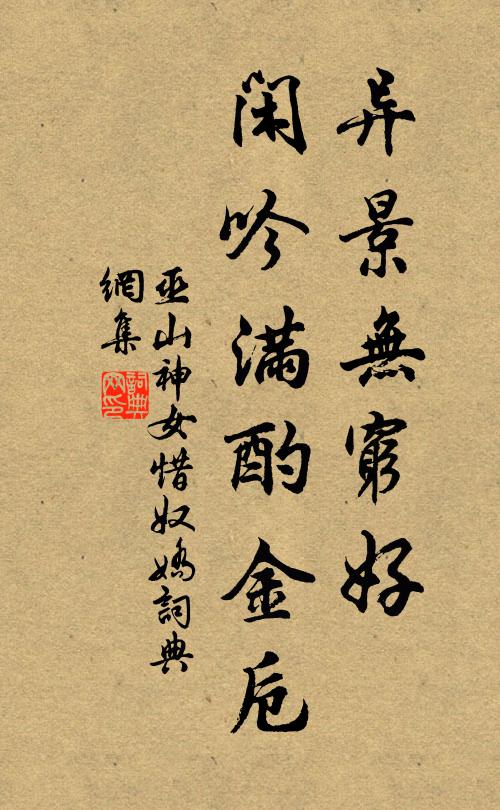 异景無窮好
閑吟滿酌金卮
巫山神女惜奴嬌詞典
網集
詞典
网印